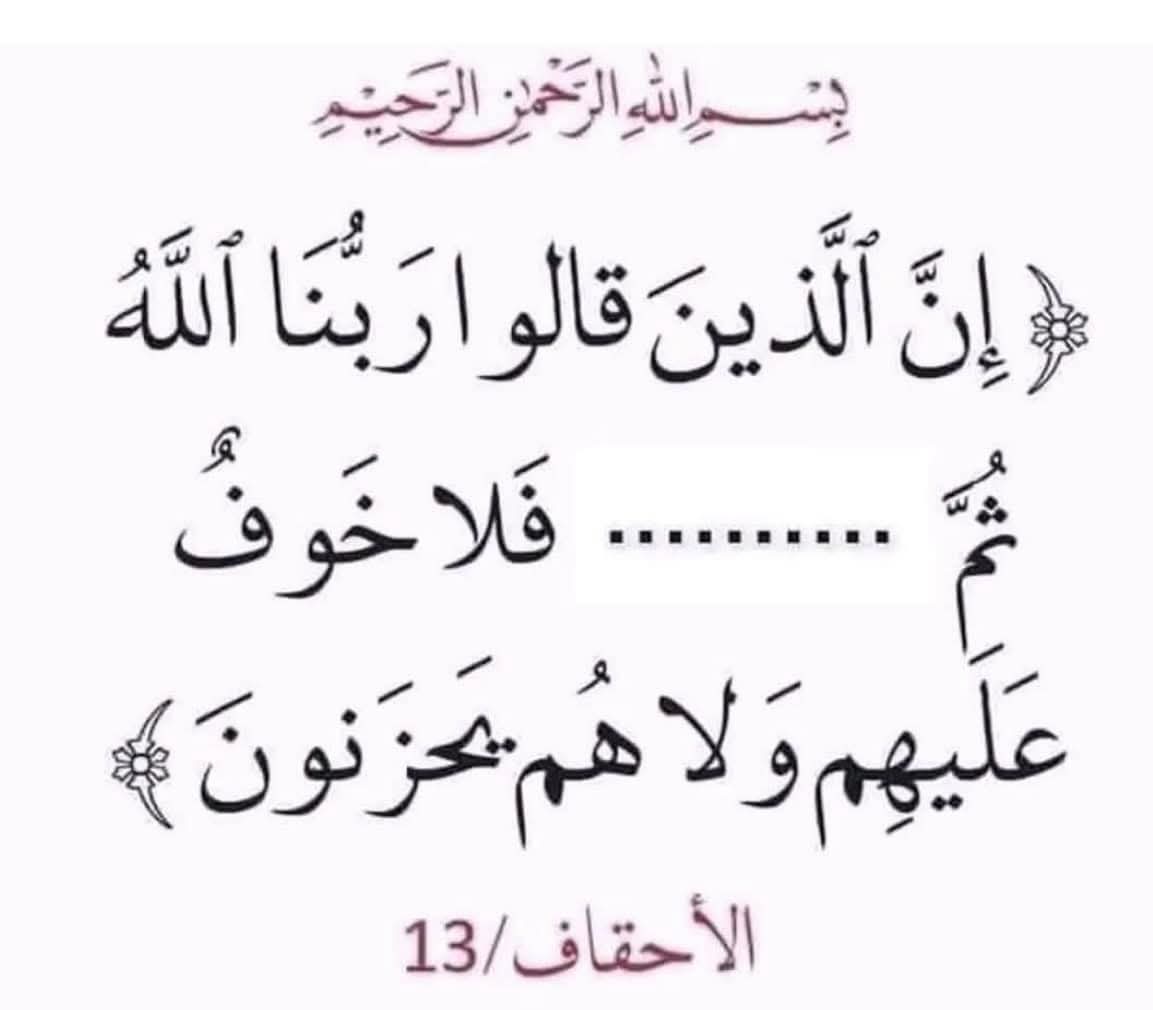 بِسْمِ اللهِ الرَّحْمٰنِ الرَّحِيْمِ
﴿إِنَّ ٱلَّذينَ قالوا رَبُّنَا ٱللَّهُ
ثُمَّ ........... فَلا خَوفٌ
عَلَيهِم وَلا هُم يَحزَنونَ﴾
الأحقاف/13